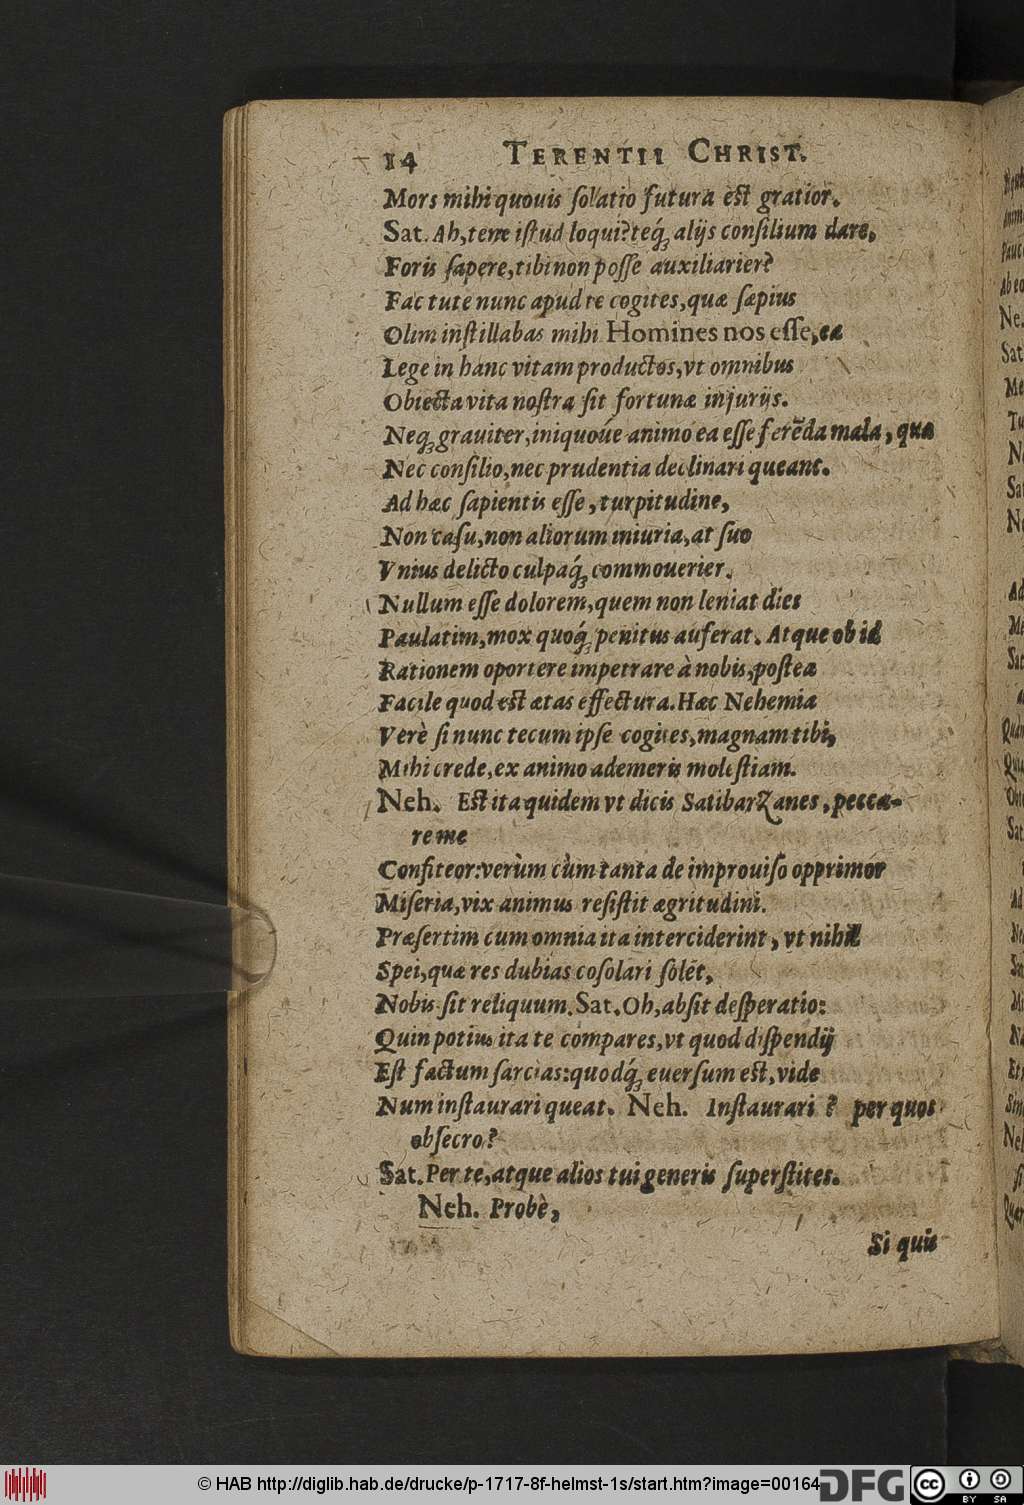 14 TERENTII CHRIST.
Mors mihi quouis solatio futura est gratior.
Sat. Ah, tene istud loqui? teq́; alijs consilium dare,
Foris sapere, tibi non posse auxiliarier?
Fac tute nunc apud te cogites, quæ sæpius
Olim instillabas mihi Homines nos esse, ea
Lege in hanc vitam productos, vt omnibus
Obiecta vita nostra sit fortunæ injurijs.
Neq; grauiter, iniquoúe animo ea esse ferẽda mala, quæ
Nec consilio, nec prudentia declinari queant.
Ad hæc sapientis esse, turpitudine,
Non casu, non aliorum iniuria, at suo
Vnius delicto culpaq́; commouerier.
Nullum esse dolorem, quem non leniat dies
Paulatim, mox quoq́; penitus auferat. Atque ob id
Rationem oportere impetrare à nobis, postea
Facile quod est ætas effectura. Hæc Nehemia
Verè si nunc tecum ipse cogites, magnam tibi,
Mihi crede, ex animo ademeris molestiam.
Neh. Est ita quidem vt dicis Satibarzanes, pecca-
re me
Confiteor: verùm cùm tanta de improuiso opprimor
Miseria, vix animus resistit ægritudini.
Præsertim cum omnia ita interciderint, vt nihil
Spei, quæ res dubias cõsolari sòlét,
Nobis sit reliquum. Sat. Oh, absit desperatio:
Quin potius ita te compares, vt quod dispendij
Est factum sarcias: quodq́; euersum est, vide
Num instaurari queat. Neh. Instaurari? per quos
obsecro?
Sat. Per te, atque alios tui generis superstites.
Neh. Probè,
Si quis
© HAB http://diglib.hab.de/drucke/p-1717-8f-helmst-1s/start.htm?image=00164
DFG
cc BY SA